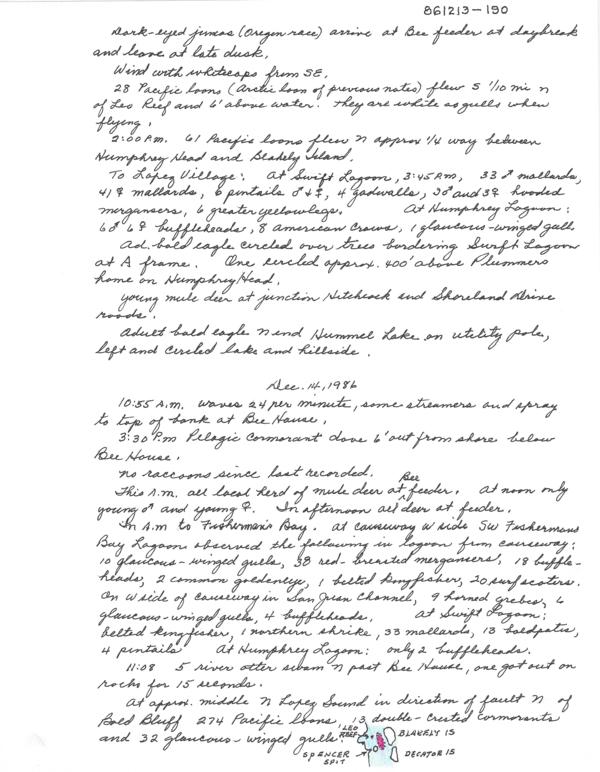 861213-190
Dark-eyed juncos (Oregon race) arrive at Bee feeder at daybreak
and leave at late dusk.
Wind with whitecaps from SE.
28 Pacific loons (Arctic loon of previous notes) flew S 1/10 mi n
of Leo Reef and 6' above water. They are white as gulls when
flying.
2:00 P.M. 61 Pacific loons flew N approx 1/4 way between
Humphrey Head and Blakely Island.
To Lopez Village: At Swift Lagoon, 3:45 P.M., 33 ♂ mallards,
41 ♀ mallards, 6 pintails ♂ + ♀, 4 gadwalls, 3♂ and 3♀ hooded
mergansers, 6 greater yellowlegs. At Humphrey Lagoon:
6♂ 6♀ buffleheads, 8 American crows, 1 glaucous-winged gull.
Ad. bald eagle circled over trees bordering Swift Lagoon
at A frame. One circled approx. 400' above Plummers
home on Humphrey Head.
Young mule deer at junction Hitchcock and Shoreland Drive
roads.
Adult bald eagle N end Hummel Lake on utility pole,
left and circled lake and hillside.
Dec. 14, 1986
10:55 A.M. waves 24 per minute, some streamers and spray
to top of bank at Bee House.
3:30 P.M Pelagic cormorant dove 6' out from shore below
Bee House.
No raccoons since last recorded.
This A.M. all local herd of mule deer at Bee feeder. At noon only
young ♂ and young ♀. In afternoon all deer at feeder.
In A.M to Fisherman's Bay. At causeway W side SW Fishermans
Bay Lagoon observed the following in lagoon from causeway:
10 glaucous-winged gulls, 38 red-breasted mergansers, 18 buffle-
heads, 2 common goldeneye, 1 belted kingfisher, 20 surf scoters.
On W side of causeway in San Juan Channel, 9 horned grebes, 6
glaucous-winged gulls, 4 buffleheads. At Swift Lagoon:
belted kingfisher, 1 northern shrike, 33 mallards, 13 baldpates,
4 pintails At Humphrey Lagoon: only 2 buffleheads.
11:08 5 river otter swam N past Bee House, one got out on
rocks for 15 seconds.
At approx. middle N Lopez Sound in direction of fault N of
Bald Bluff 274 Pacific loons, 13 double-crested cormorants
and 32 glaucous-winged gulls.
LEO
REEF
BLAKELY IS
SPENCER
SPIT
DECATOR IS